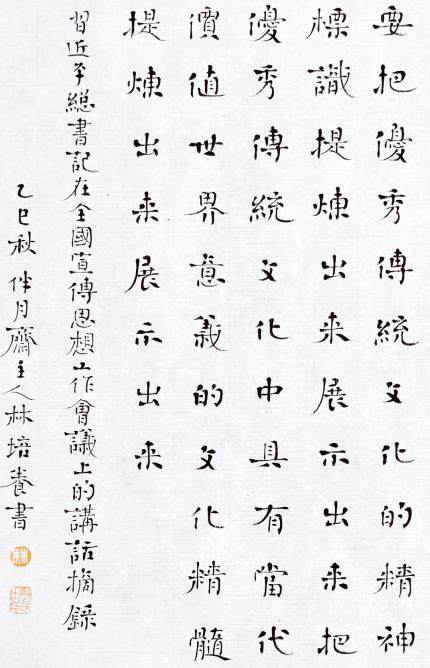 要把優秀傳統文化的精神
標識提煉出来展示出来把
優秀傳統文化中具有當代
價值世界意義的文化精髓
提煉出来展示出来
習近平總書記在全國宣傳思想工作會議上的講話摘錄
乙巳秋伴月齋主人林培養書